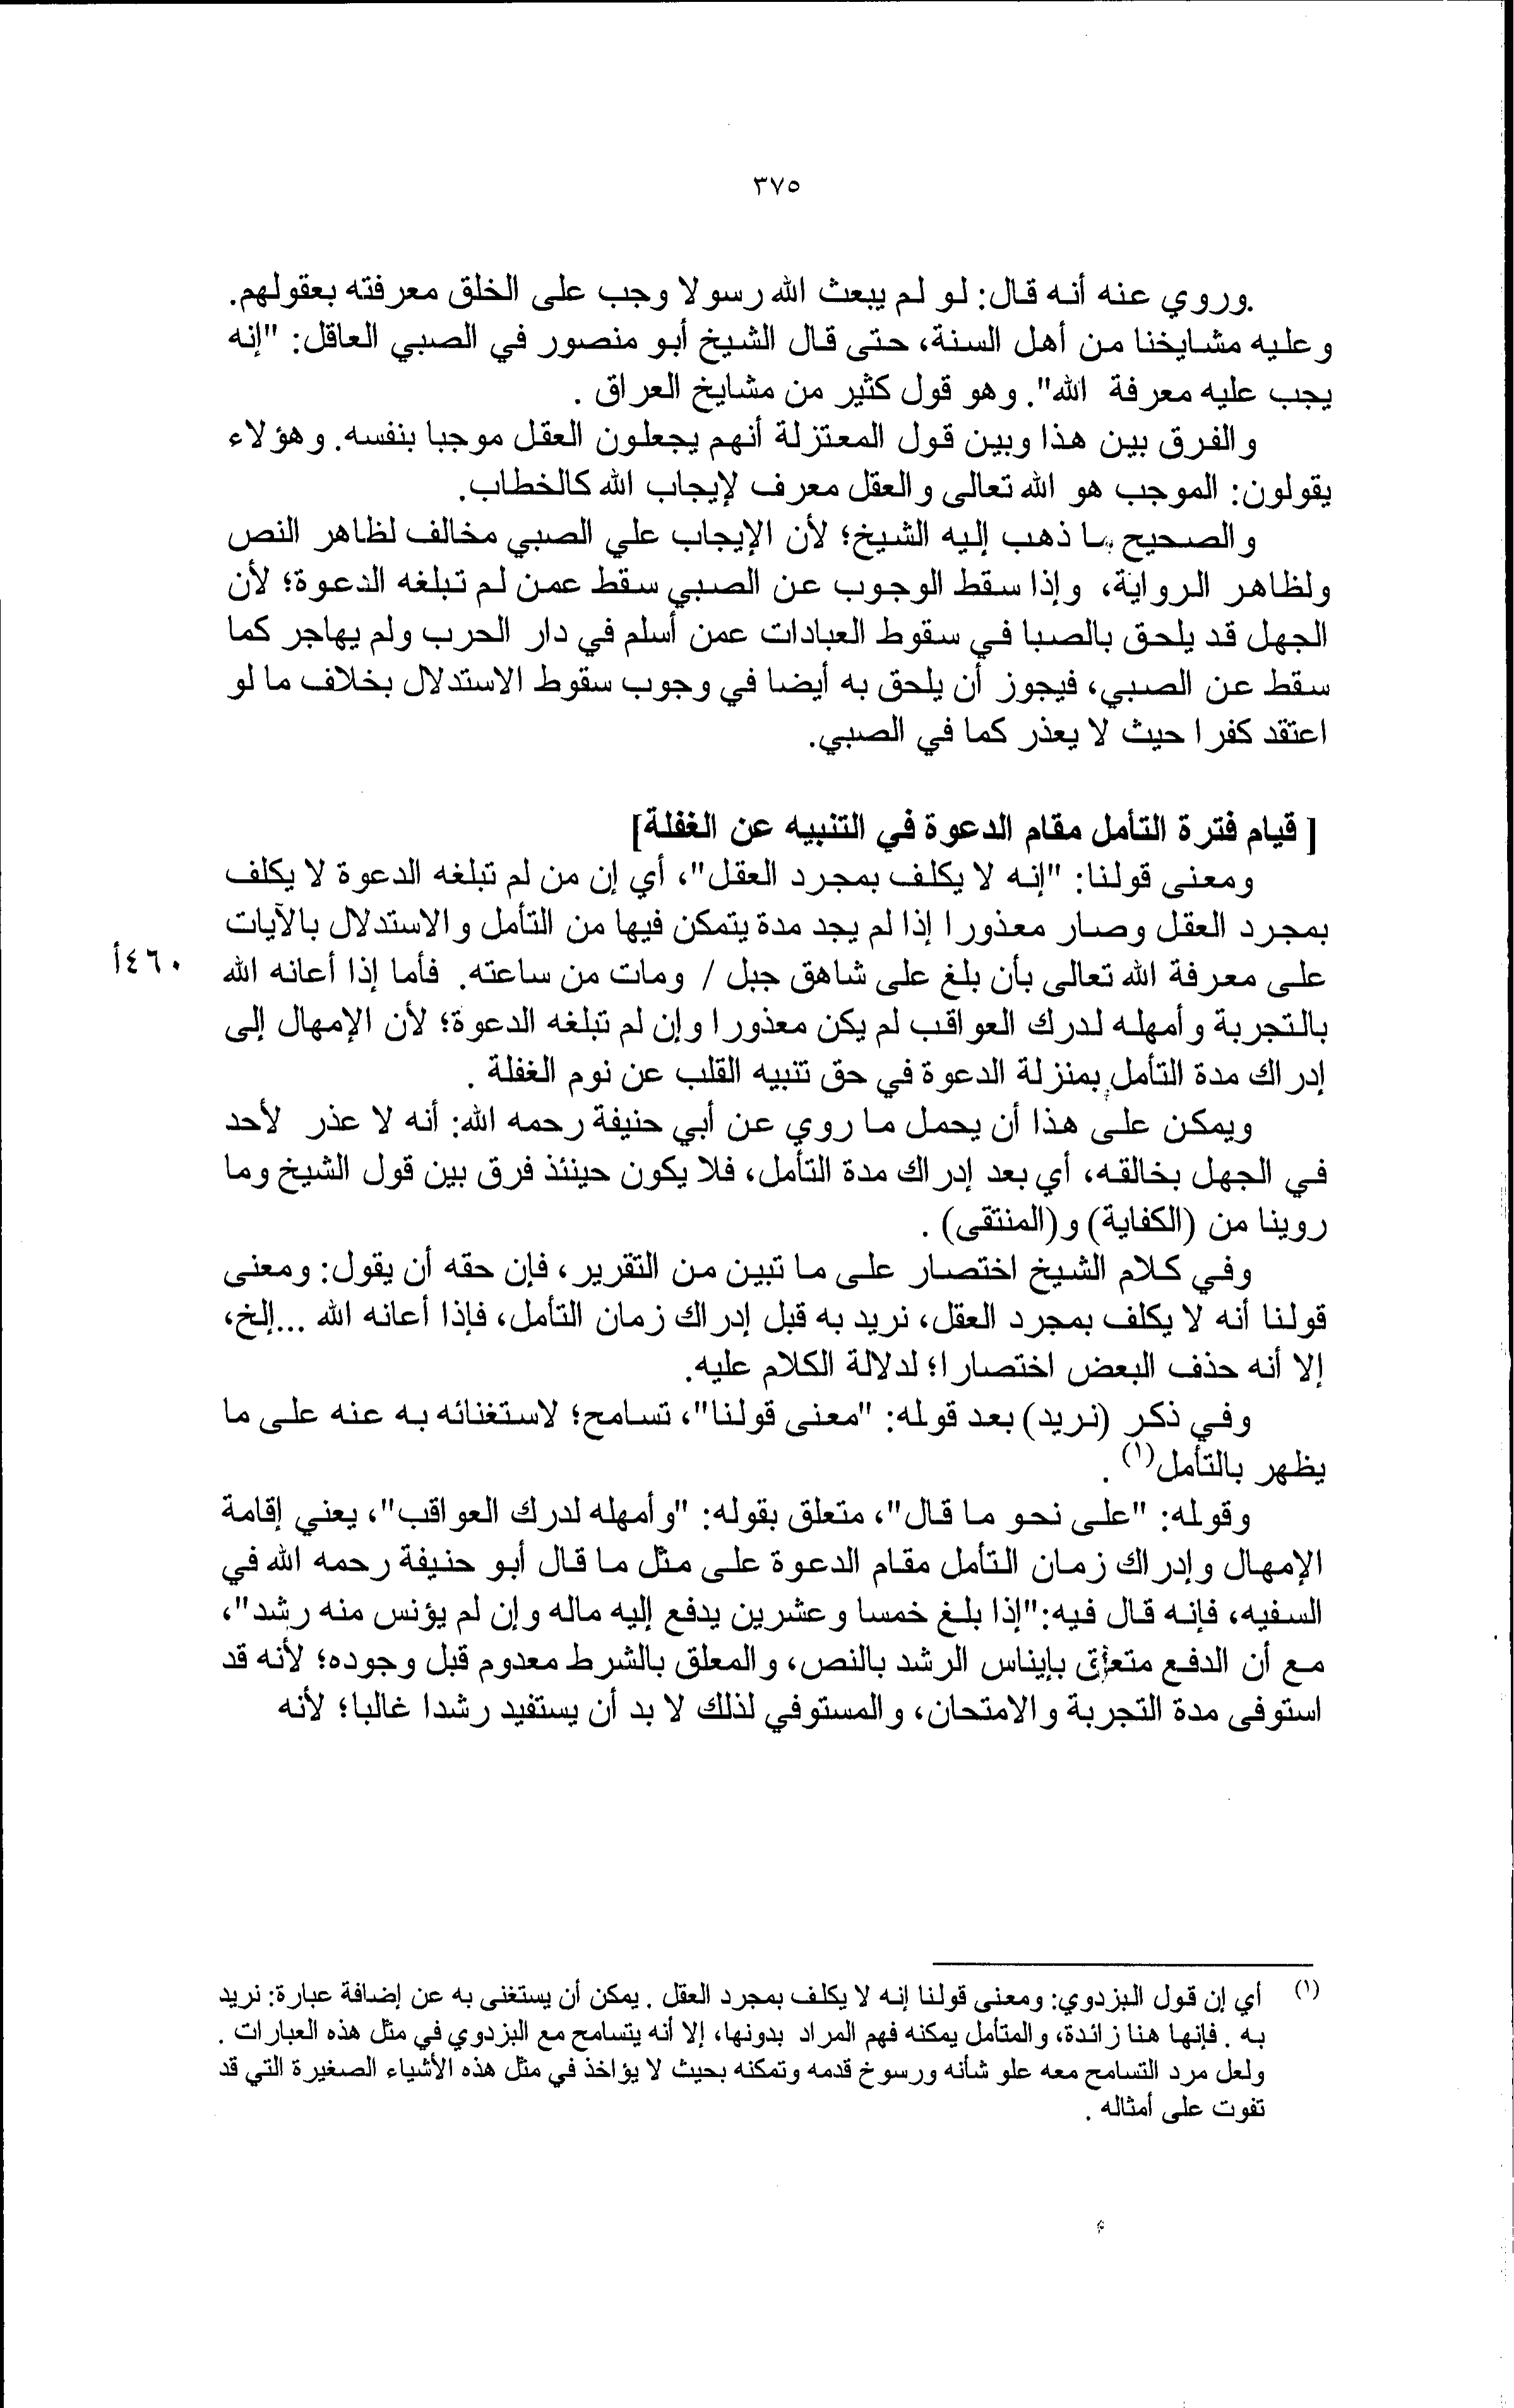 ٣٧٥
وروي عنه أنه قال: لو لم يبعث الله رسولا وجب على الخلق معرفته بعقولهم.
وعليه مشايخنا من أهل السنة، حتى قال الشيخ أبو منصور في الصبي العاقل: "إنه
يجب عليه معرفة الله". وهو قول كثير من مشايخ العراق .
والفرق بين هذا وبين قول المعتزلة أنهم يجعلون العقل موجبا بنفسه. وهؤلاء
يقولون: الموجب هو الله تعالى والعقل معرف لإيجاب الله كالخطاب.
والصحيح ما ذهب إليه الشيخ؛ لأن الإيجاب علي الصبي مخالف لظاهر النص
ولظاهر الرواية، وإذا سقط الوجوب عن الصبي سقط عمن لم تبلغه الدعوة؛ لأن
الجهل قد يلحق بالصبا في سقوط العبادات عمن أسلم في دار الحرب ولم يهاجر كما
سقط عن الصبي، فيجوز أن يلحق به أيضا في وجوب سقوط الاستدلال بخلاف ما لو
اعتقد كفرا حيث لا يعذر كما في الصبي.
[ قيام فترة التأمل مقام الدعوة في التنبيه عن الغفلة]
ومعنى قولنا: "إنه لا يكلف بمجرد العقل"، أي إن من لم تبلغه الدعوة لا يكلف
بمجرد العقل وصار معذورا إذا لم يجد مدة يتمكن فيها من التأمل والاستدلال بالآيات
على معرفة الله تعالى بأن بلغ على شاهق جبل / ومات من ساعته. فأما إذا أعانه الله
٤٦٠أ
بالتجربة وأمهله لدرك العواقب لم يكن معذورا وإن لم تبلغه الدعوة؛ لأن الإمهال إلى
إدراك مدة التأمل بمنزلة الدعوة في حق تنبيه القلب عن نوم الغفلة .
ويمكن على هذا أن يحمل ما روي عن أبي حنيفة رحمه الله: أنه لا عذر لأحد
في الجهل بخالقه، أي بعد إدراك مدة التأمل، فلا يكون حينئذ فرق بين قول الشيخ وما
روينا من (الكفاية) و(المنتقى) .
وفي كلام الشيخ اختصار على ما تبين من التقرير، فإن حقه أن يقول: ومعنى
قولنا أنه لا يكلف بمجرد العقل، نريد به قبل إدراك زمان التأمل، فإذا أعانه الله ...إلخ،
إلا أنه حذف البعض اختصارا؛ لدلالة الكلام عليه.
وفي ذكر (نريد) بعد قوله: "معنى قولنا"، تسامح؛ لاستغنائه به عنه على ما
يظهر بالتأمل(١) .
وقوله: "على نحو ما قال"، متعلق بقوله: "وأمهله لدرك العواقب"، يعني إقامة
الإمهال وإدراك زمان التأمل مقام الدعوة على مثل ما قال أبو حنيفة رحمه الله في
السفيه، فإنه قال فيه:"إذا بلغ خمسا وعشرين يدفع إليه ماله وإن لم يؤنس منه رشد"،
مع أن الدفع متعلق بإيناس الرشد بالنص، والمعلق بالشرط معدوم قبل وجوده؛ لأنه قد
استوفى مدة التجربة والامتحان، والمستوفي لذلك لا بد أن يستفيد رشدا غالبا؛ لأنه
(١) أي إن قول البزدوي: ومعنى قولنا إنه لا يكلف بمجرد العقل . يمكن أن يستغنى به عن إضافة عبارة: نريد
به . فإنها هنا زائدة، والمتأمل يمكنه فهم المراد بدونها، إلا أنه يتسامح مع البزدوي في مثل هذه العبارات .
ولعل مرد التسامح معه علو شأنه ورسوخ قدمه وتمكنه بحيث لا يؤاخذ في مثل هذه الأشياء الصغيرة التي قد
تفوت على أمثاله .